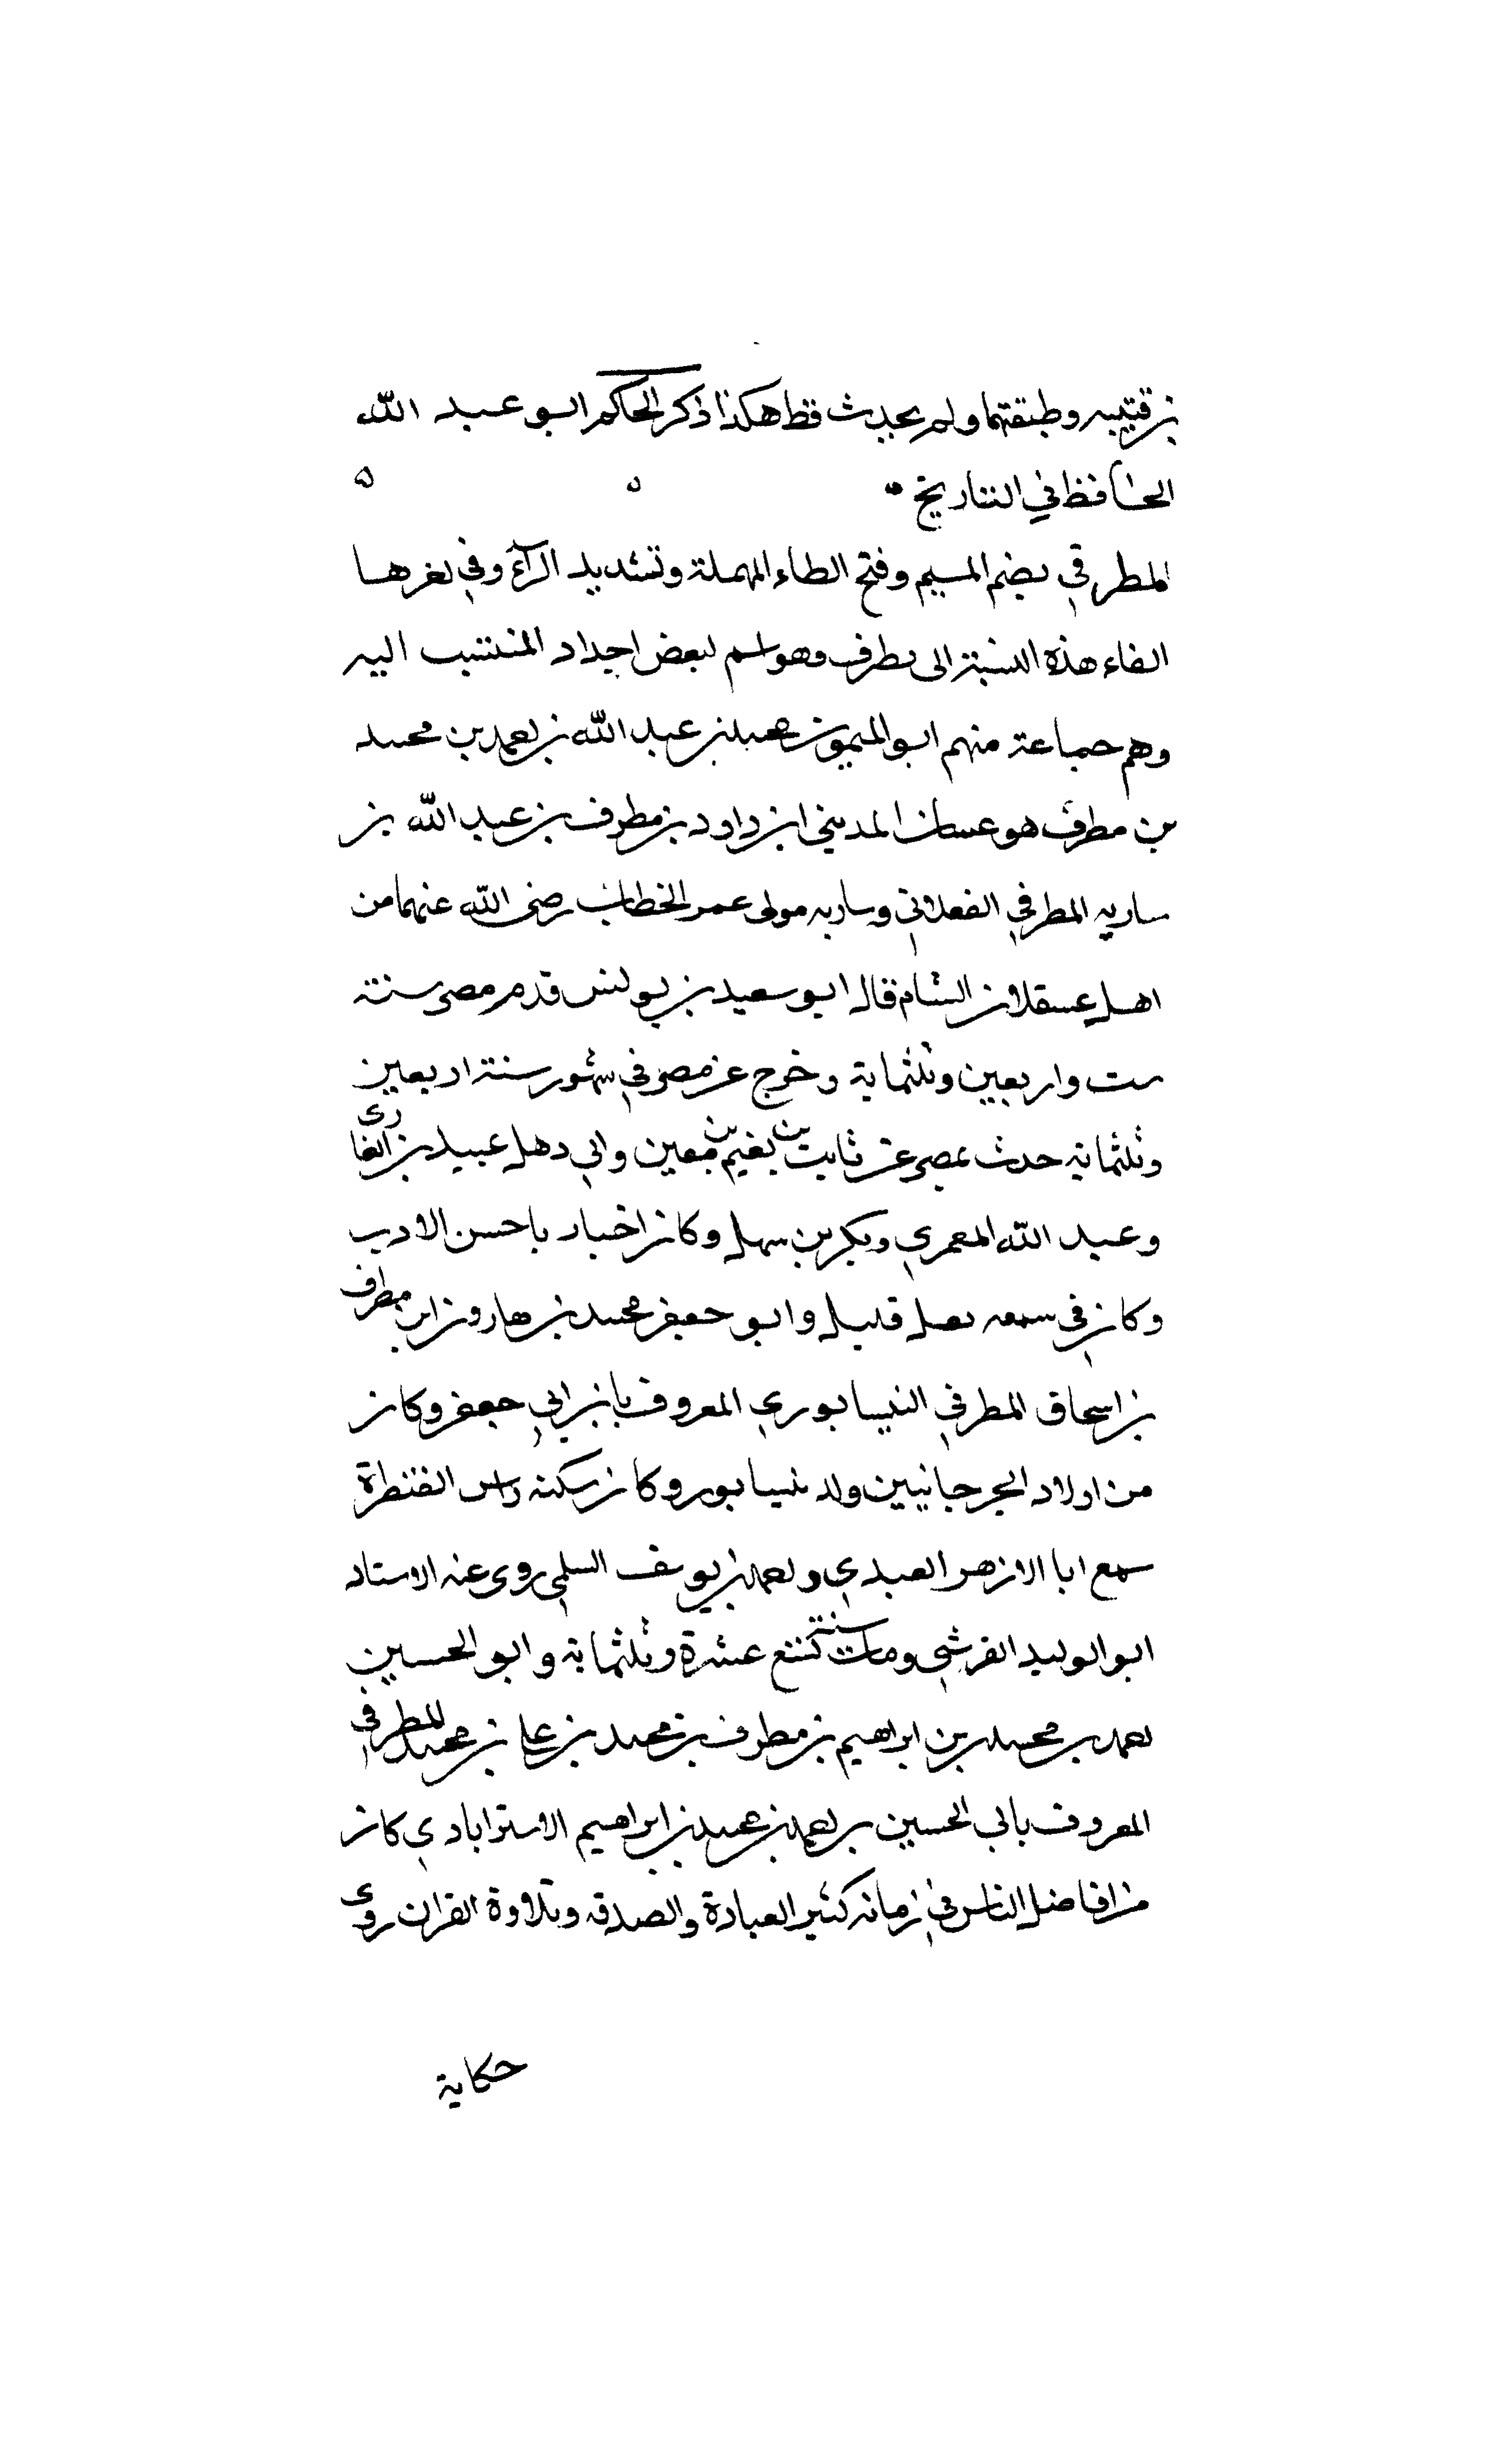 بن قتيبه وطبقتهما ولم يحدث قط هكذا ذكر الحاكم ابو عبد الله
الحافظ في التاريخ
المطرفي بضم الميم وفتح الطاء المهملة وتشديد الراء وفي اخرها
الفاء هذه النسبة الى مطرف وهو اسم لبعض اجداد المنتسب اليه
وهم جماعة منهم ابو الميمون محمد بن عبد الله بن احمد بن محمد
من مطرف هو عسان المديني ابن داود بن مطرف بن عبد الله بن
ساريه المطرفي وساريه مولى عمر الخطاب رضي الله عنهما من
اهل عسقلان الشام قال ابو سعيد بن يونس قدم مصر سنة
ست واربعين وثلثماية وخرج عن مصر في شهور سنة اربعين
وثلثماية حدث بمصر عن ثابت بن نعيم بن معين وابي دهل عبيد بن الغازى
وعبد الله المعمري وبكر بن سهل وكان اخبار باحسن الادب
وكان في سمعه ثقل قليل وابو جعفر محمد بن هارون ابن مطرف
بن اسحاق المطرفي النيسابوري المعروف بابن ابي جعفر وكان
من اولاد الجرجانيين ولد نيسابور وكان سكنه راس القنطرة
سمع ابا الازهر العبدي واحمد بن يوسف السلمي روى عنه الاستاد
ابو الوليد القرشي ومات سنة تسع عشرة وثلثماية وابو الحسين
احمد بن محمد بن ابراهيم بن مطرف بن محمد بن علي بن حميد المطرفي
المعروف بابي الحسين بن احمد بن محمد بن ابراهيم الاسترابادي كان
من افاضل الناس في زمانه كثير العبادة والصدقه وتلاوة القران روى
حكاية